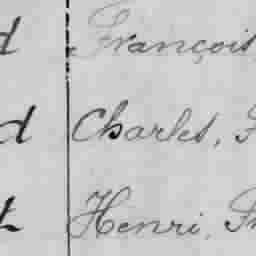 d François
d Charles, F
t Henri, Fr